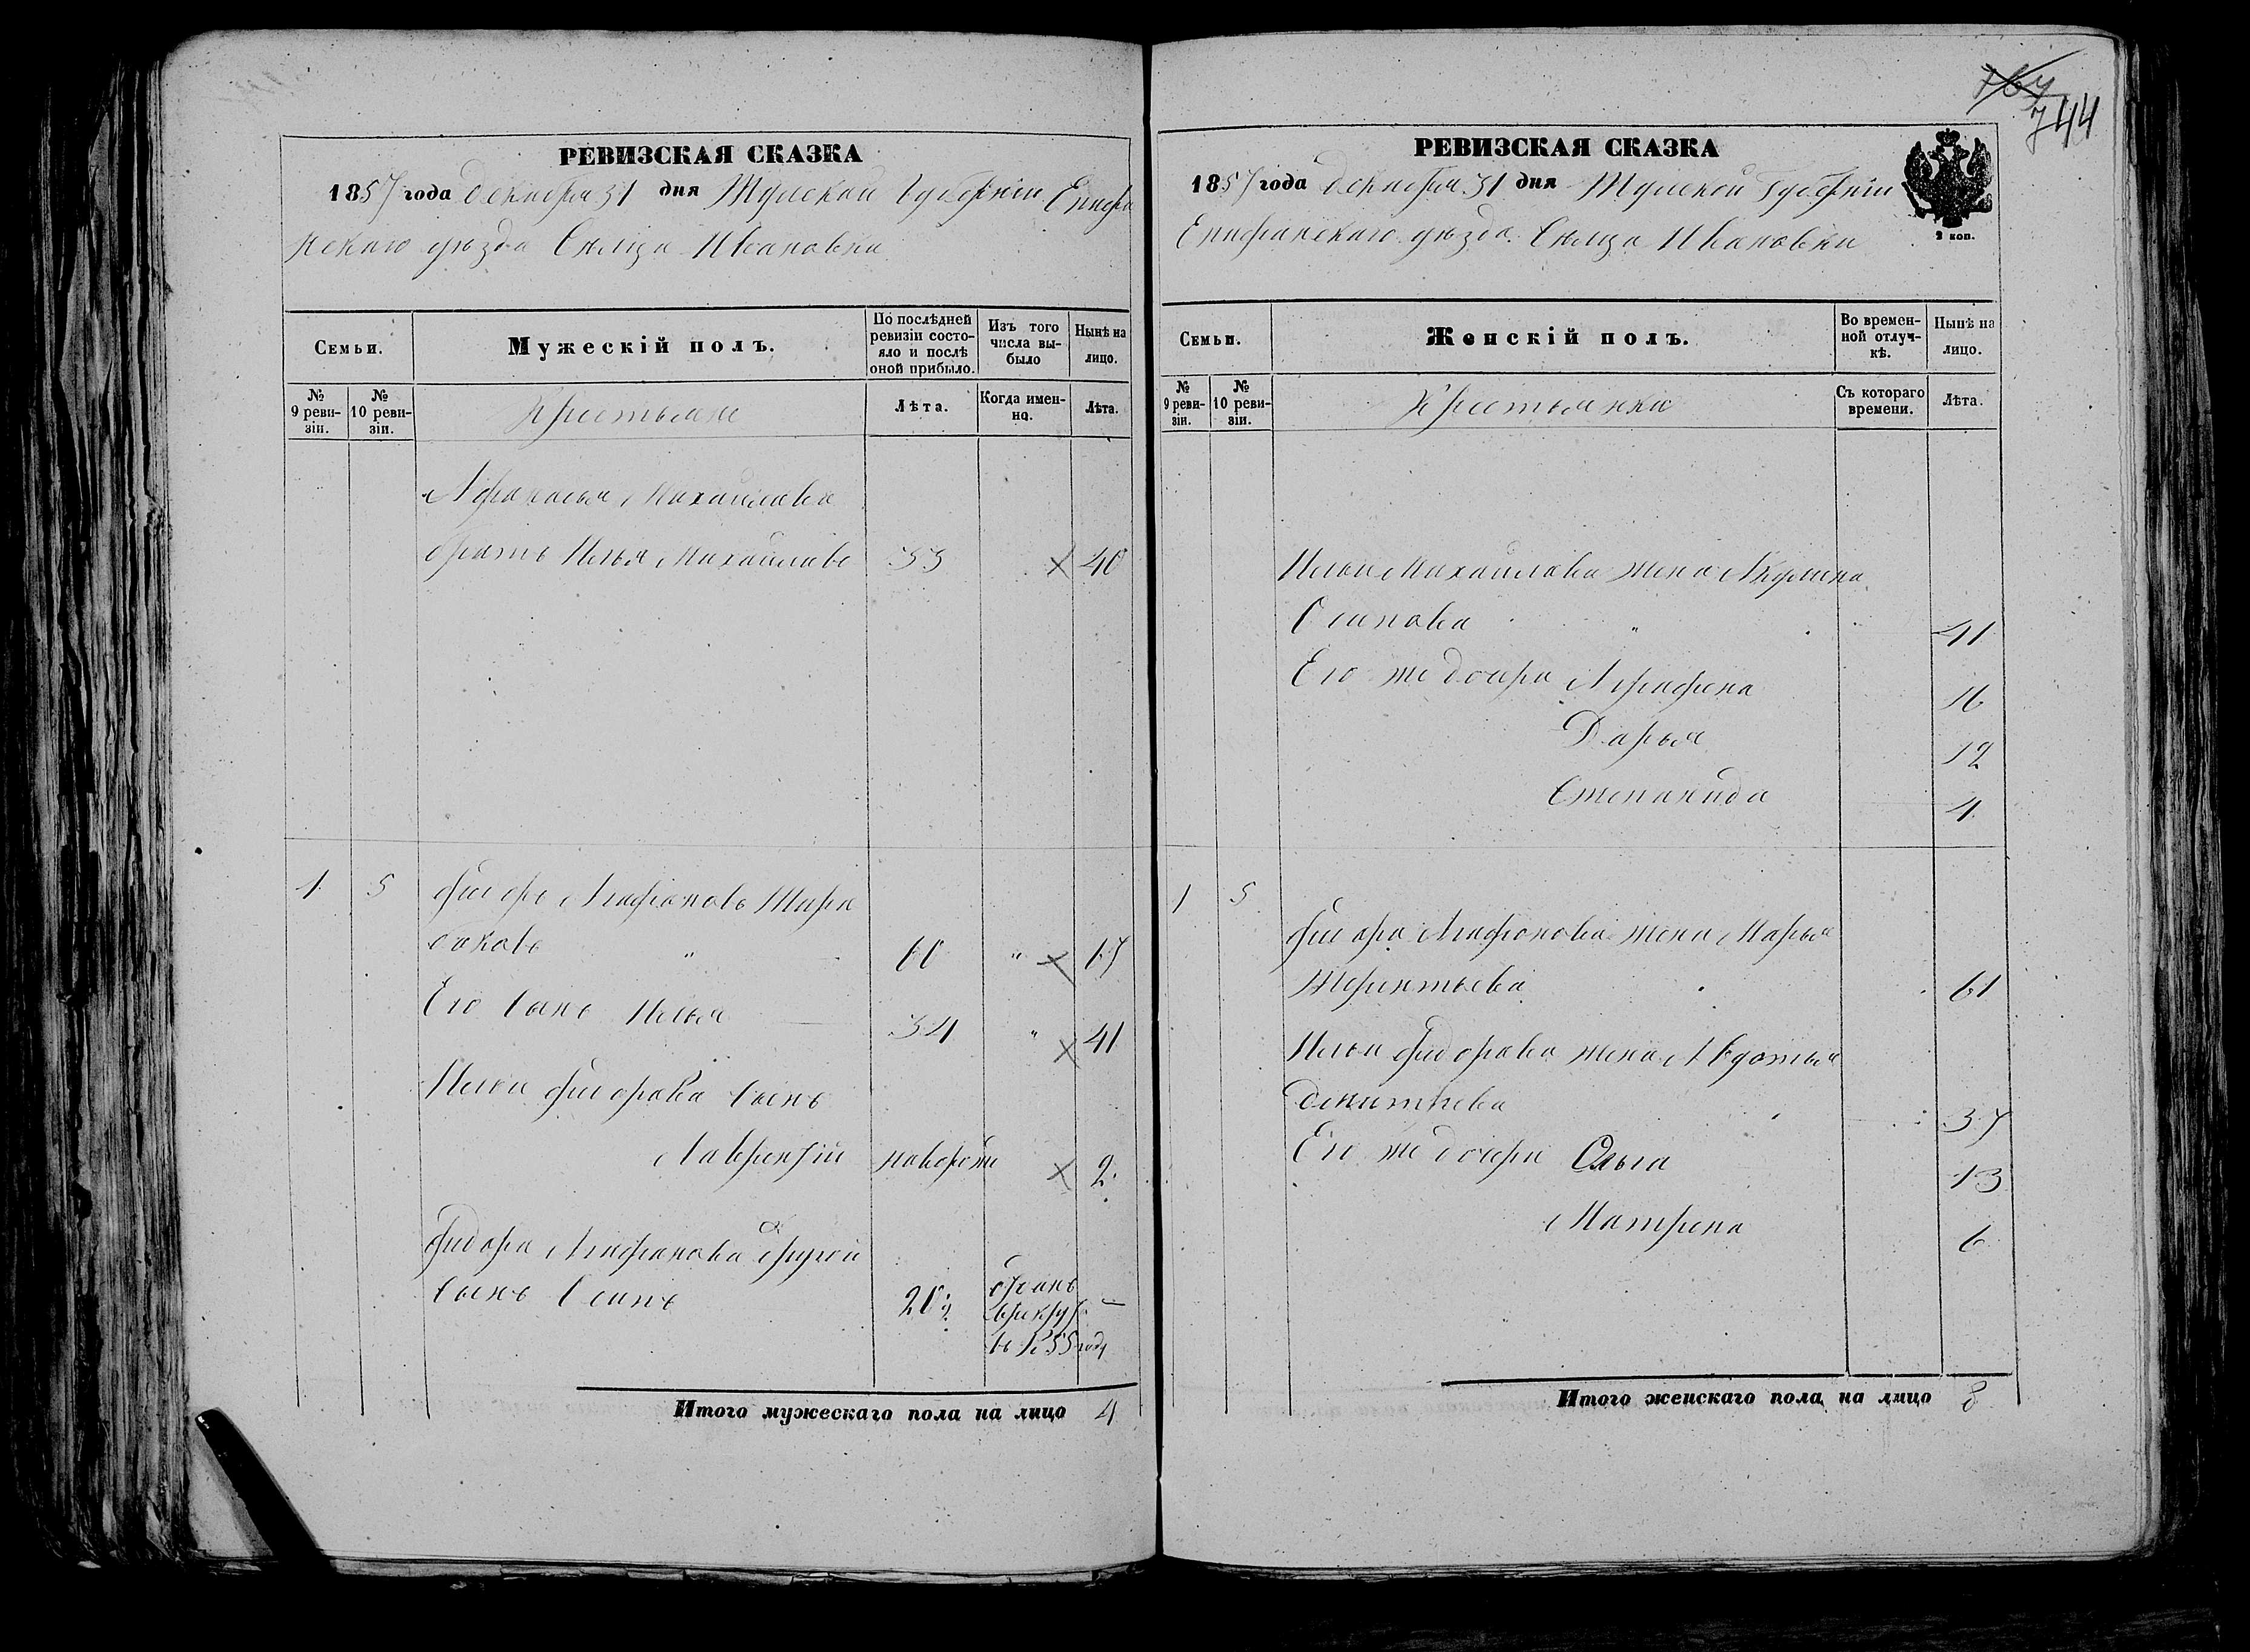 744
РЕВИЗСКАЯ СКАЗКА
1857 года декабря 31 дня Тульской Губерніи Епифа
нскаго уезда Сельца Ивановки
Семьи.
Мужескій полъ.
По послѣдней ревизіи состояло и послѣ оной прибыло.
Изъ того числа выбыло
Нынѣ на лицо.
№ 9 ревизіи.
№ 10 ревизіи.
Крестьяне
Лѣта.
Когда именно.
Лѣта.
Афанасья Михайлова
братъ Илья Михайловъ 33 40
1 5 Фидоръ Агафоновъ
60 " 67
Его Сынъ Илья 34 " 41
Ильи Фидорова Сынъ
Лаврентій новорож 2
Фидора Агафонова другой
Сынъ Осипъ 20½ отданъ
в рекрут. —
въ 1855 году
Итого мужескаго пола на лицо 4
РЕВИЗСКАЯ СКАЗКА
1857 года декабря 31 дня Тульской Губерніи
Епифанскаго уезда Сельца Ивановки
2 коп.
Семьи.
Женскій полъ.
Во временной отлучкѣ.
Нынѣ на лицо.
№ 9 ревизіи.
№ 10 ревизіи.
Крестьянки
Съ котораго времени.
Лѣта.
Ильи Михайлова жена Акулина
Осипова 41
Его же дочери Аграфена 16
Дарья 12
Степанида 4
1 5
Фидора Агафонова жена Марья
Терентьева 61
Ильи Фидорова жена Авдотья
37
Его же дочери Ольга 13
Матрена 6
Итого женскаго пола на лицо 8